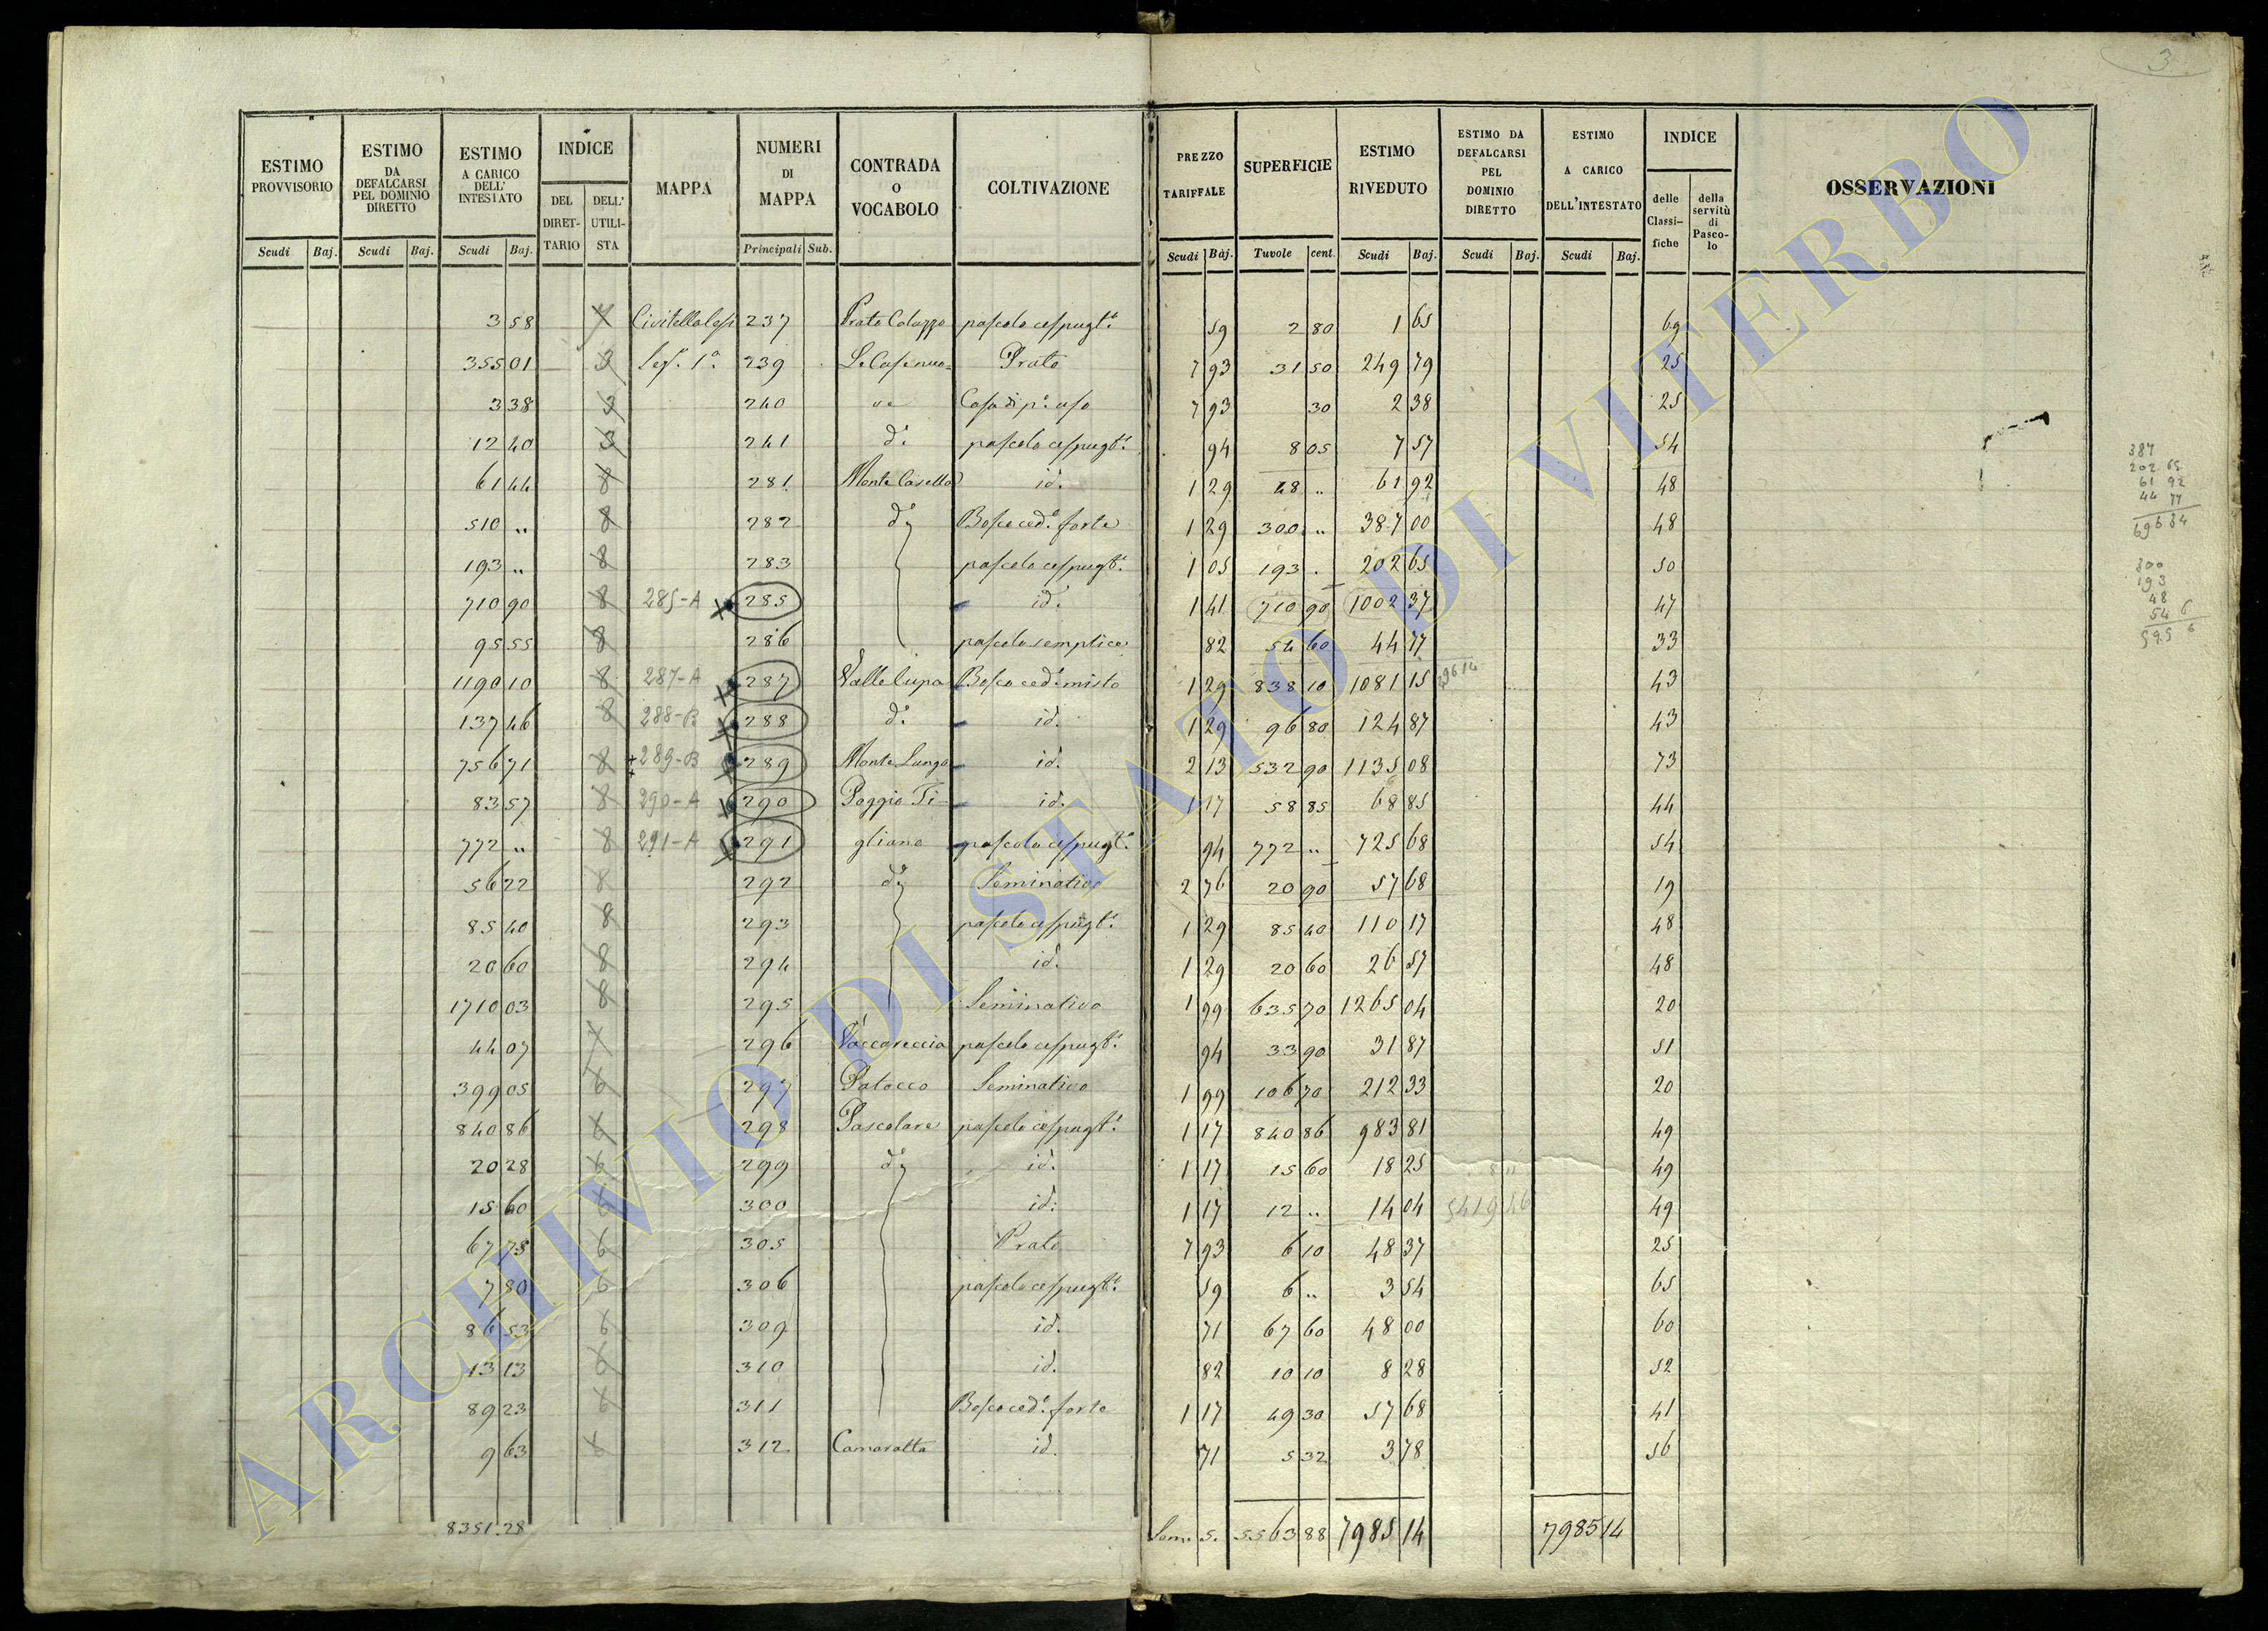 3
ESTIMO PROVVISORIO | ESTIMO DA DEFALCARSI PEL DOMINIO DIRETTO | ESTIMO A CARICO DELL' INTESTATO | INDICE DEL DIRET-TARIO | DELL' UTILI-STA | MAPPA | NUMERI DI MAPPA | CONTRADA O VOCABOLO | COLTIVAZIONE | PREZZO TARIFFALE | SUPERFICIE | ESTIMO RIVEDUTO | ESTIMO DA DEFALCARSI PEL DOMINIO DIRETTO | ESTIMO A CARICO DELL'INTESTATO | INDICE delle Classi-fiche | della servitù di Pasco-lo | OSSERVAZIONI
Scudi | Baj. | Scudi | Baj. | Scudi | Baj. | Principali | Sub. | Scudi | Baj. | Tuvole | cent. | Scudi | Baj. | Scudi | Baj. | Scudi | Baj.
3 58 | Civitellalesi | 237 | Prato Colazzo | pascolo cespugt.o | 59 | 2 80 | 1 65 | 69
355 01 | 3 | Sez. 1a. | 239 | Le Casenuo= | Prato | 7 93 | 31 50 | 249 79 | 25
3 38 | 3 | 240 | ve | Casa di p.o uso | 7 93 | 30 | 2 38 | 25
12 40 | 3 | 241 | do. | pascolo cespugt.o | 94 | 8 05 | 7 57 | 54
61 44 | 8 | 281 | Monte Casella | id. | 1 29 | 48 .. | 61 92 | 48
510 .. | 8 | 282 | do | Bosco ced.o forte | 1 29 | 300 .. | 387 00 | 48
193 .. | 8 | 283 | pascolo cespugt.o | 1 05 | 193 . | 202 65 | 50
710 90 | 8 | 285-A | 285 | id. | 1 41 | 710 90 | 1002 37 | 47
95 55 | 8 | 286 | pascolo semplice | 82 | 54 60 | 44 77 | 33
1190 10 | 8 | 287-A | 287 | Valle Cupa | Bosco ced.o misto | 1 29 | 838 10 | 1081 15 | 43
137 46 | 8 | 288-B | 288 | do. | id. | 1 29 | 96 80 | 124 87 | 43
756 71 | 8 | 289-B | 289 | Monte Lungo | id. | 2 13 | 532 90 | 1135 08 | 73
83 57 | 8 | 290-A | 290 | Poggio Ti- | id. | 1 17 | 58 85 | 68 85 | 44
772 .. | 8 | 291-A | 291 | gliano | pascolo cespugt.o | 94 | 772 .. | 725 68 | 54
56 22 | 8 | 292 | do | Seminativo | 2 76 | 20 90 | 57 68 | 19
85 40 | 8 | 293 | pascolo cespugt.o | 1 29 | 85 40 | 110 17 | 48
20 60 | 8 | 294 | id. | 1 29 | 20 60 | 26 57 | 48
1710 03 | 8 | 295 | Seminativo | 1 99 | 635 70 | 1265 04 | 20
44 07 | 296 | Vaccareccia | pascolo cespugt.o | 94 | 33 90 | 31 87 | 51
399 05 | 6 | 297 | Patacco | Seminativo | 1 99 | 106 70 | 212 33 | 20
840 86 | 6 | 298 | Pascolare | pascolo cespugt.o | 1 17 | 840 86 | 983 81 | 49
20 28 | 6 | 299 | do | id. | 1 17 | 15 60 | 18 25 | 49
15 60 | 6 | 300 | id. | 1 17 | 12 .. | 14 04 | 5419 46 | 49
67 75 | 6 | 305 | Prato | 7 93 | 6 10 | 48 37 | 25
7 80 | 6 | 306 | pascolo cespugt.o | 59 | 6 .. | 3 54 | 65
86 53 | 6 | 309 | id. | 71 | 67 60 | 48 00 | 60
13 13 | 6 | 310 | id. | 82 | 10 10 | 8 28 | 52
89 23 | 6 | 311 | Bosco ced.o forte | 1 17 | 49 30 | 57 68 | 41
9 63 | 312 | Camaratta | id. | 71 | 5 32 | 3 78 | 56
8351.28 | Som. S. | 5563 88 | 7985 14 | 7985 14
387
202 65
61 92
44 77
696 34
300
193
48
54 6
595 6
ARCHIVIO DI STATO DI VITERBO